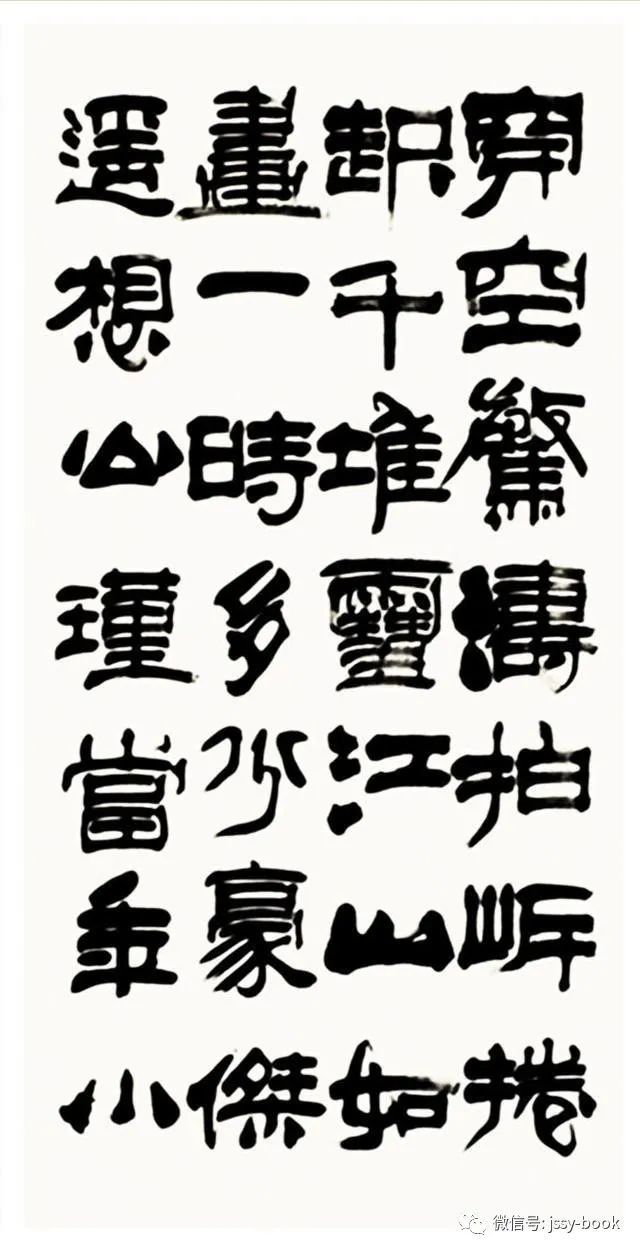 穿空驚濤拍岸捲
起千堆雪江山如
畫一時多少豪傑
遥想公瑾當年小
微信号: jssy-book